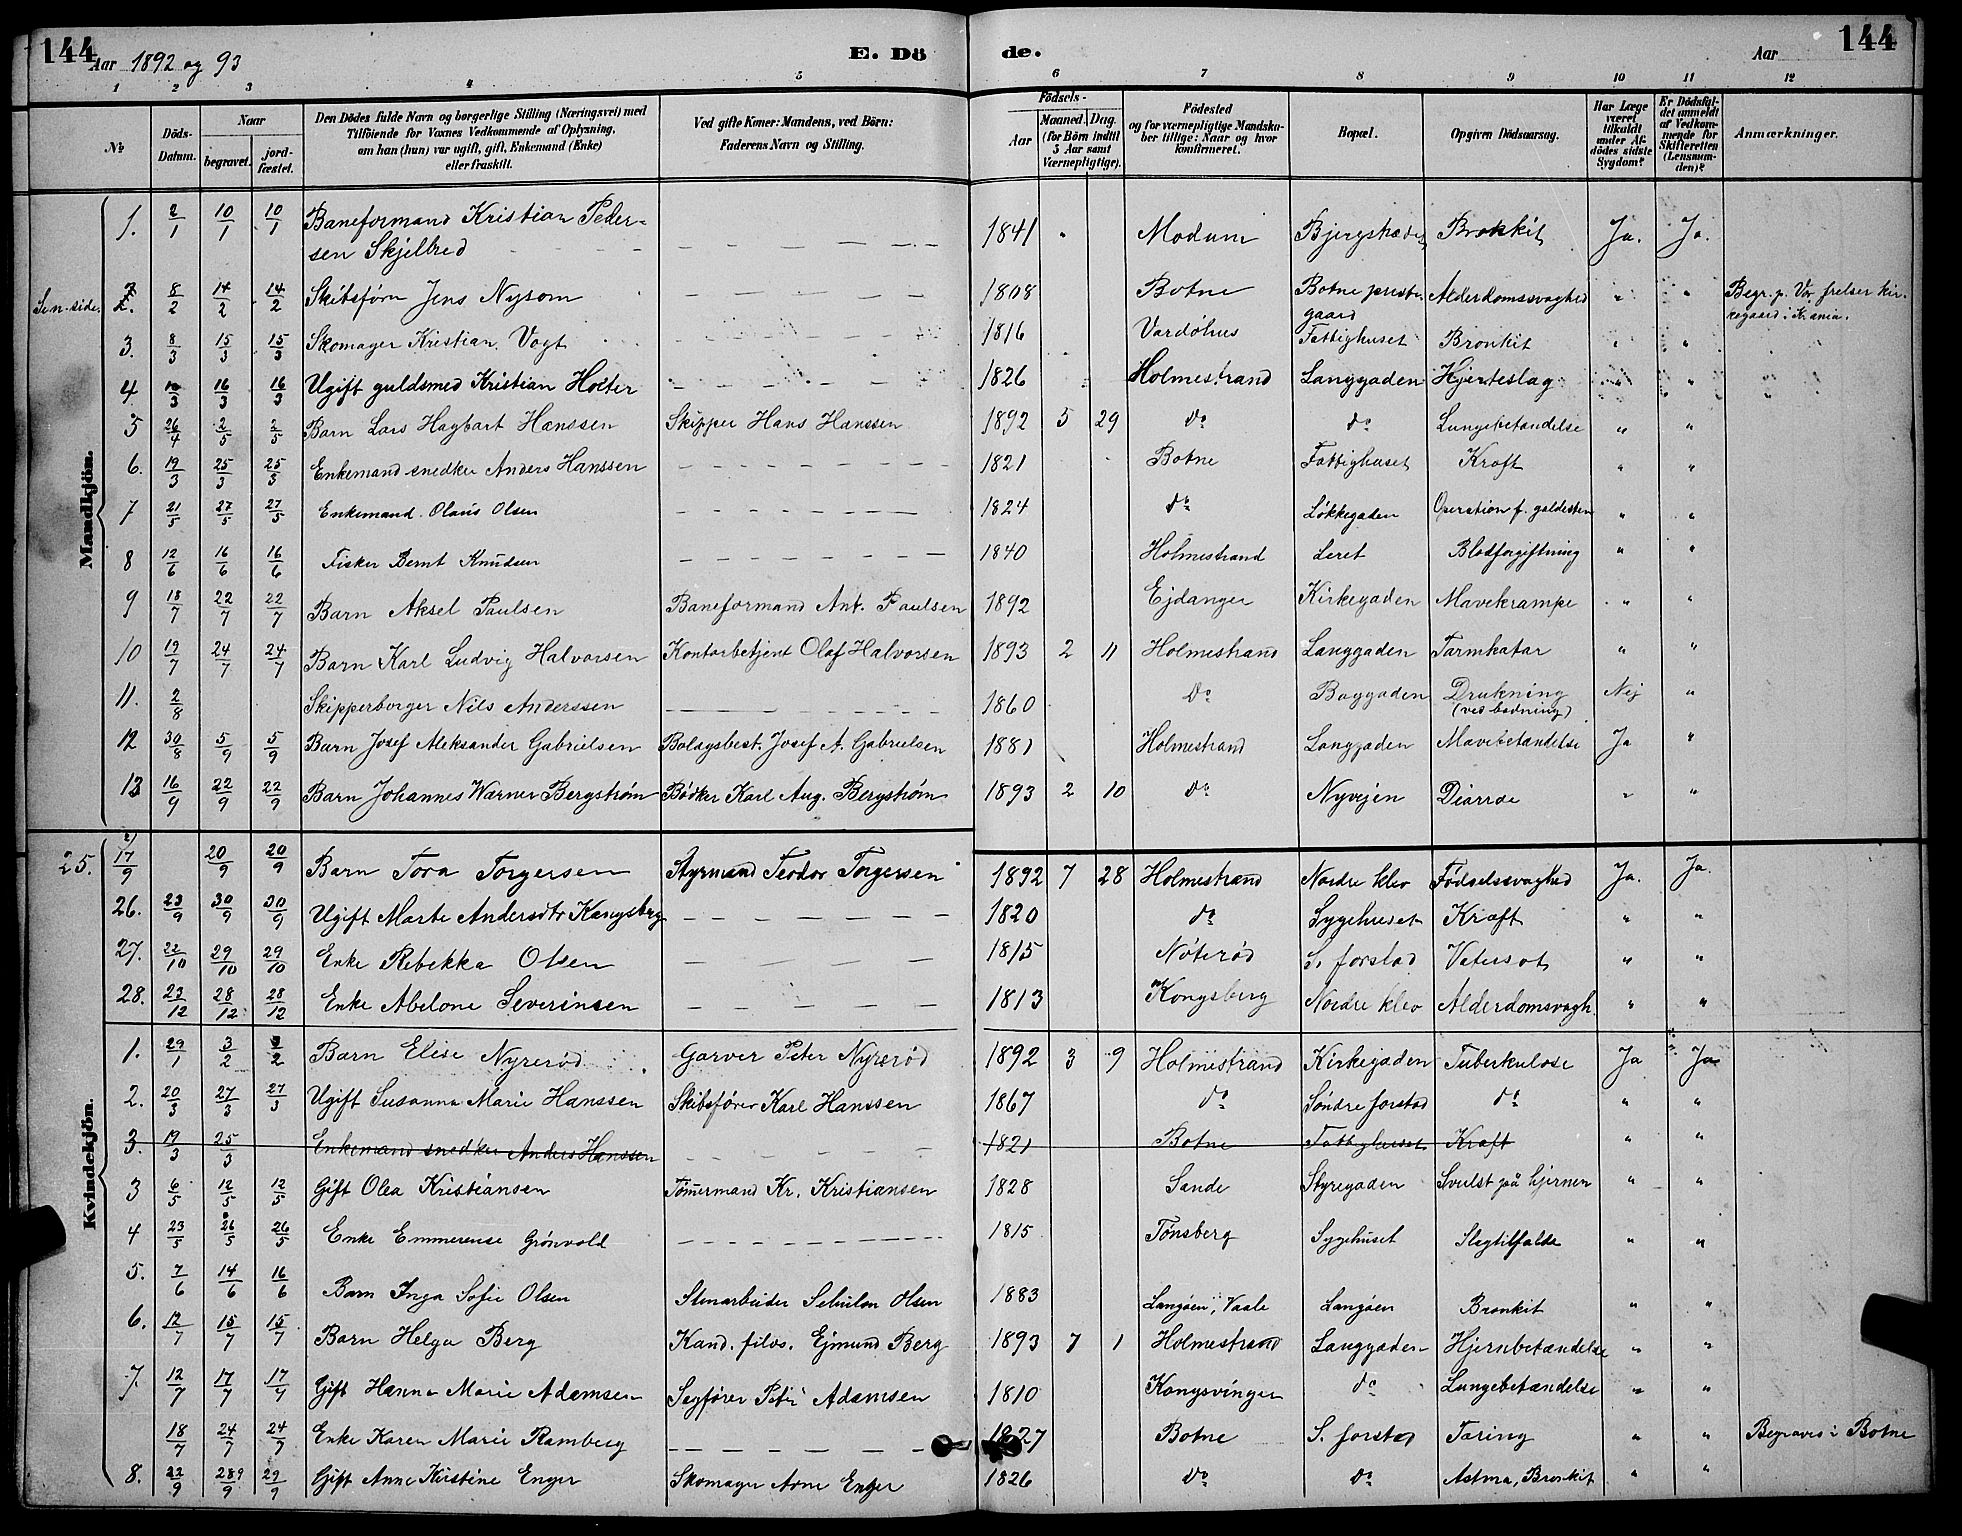 144
Aar 1892 og 93
E. Dö
de.
Aar
144
1 2 3 4 5 6 7 8 9 10 11 12
No
Döds-Datum.
Naar
begravet.
jord-fæstet.
Den Dödes fulde Navn og borgerlige Stilling (Næringsvei) med
Tilföiende for Voxnes Vedkommende af Oplysning,
om han (hun) var ugift, gift, Enkemand (Enke)
eller fraskilt.
Ved gifte Koner: Mandens, ved Börn:
Faderens Navn og Stilling.
Födsels-
Aar
Maaned. Dag.
(for Börn indtil
5 Aar samt
Værnepligtige).
Födested
og for værnepligtige Mandska-
ber tillige: Naar og hvor
konfirmeret.
Bopæl.
Opgiven Dödsaarsag.
Har Læge
været
tilkaldt
under Af-
dödes sidste
Sygdom?
Er Dödsfal-
det anmeldt
af Vedkom-
mende for
Skifteretten
(Lensman-
den)?
Anmærkninger.
Mandkjön.
1. 2/1 10/1 10/1 Baneformand Kristian Peder-
sen Skjelbred 1841 Modum Bjergstræde Bronkit Ja. Ja.
2. 8/2 14/2 14/2 Skibsförn Jens Nysom — 1808 Botne Botne preste-
gaard Alderdomssvaghed " " Begr. p. Vor frelser kir-
kegaard i K.ania.
3. 8/3 15/3 15/3 Skomager Kristian Vogt 1816 Vardøhus Fattighuset Bronkit " "
4 16/3 16/3 Ugift guldsmed Kristian Holter — 1826 Holmestrand Langgaden Hjerteslag " "
5 26/4 2/5 2/5 Barn Lars Hagbart Hanssen Skipper Hans Hanssen 1892 5 29 do do Lungebetændelse " "
6. 19/3 25/3 25/3 Enkemand snedker Anders Hanssen — 1821 Botne Fattighuset Kræft " "
7 21/5 27/5 27/5 Enkemand Olaus Olsen — 1824 do Løkkegaden Operation f. galdesten " "
8 12/6 16/6 16/6 Fisker Bernt Knudsen — 1840 Holmestrand Leret Blodforgiftning " "
9 18/7 22/7 22/7 Barn Aksel Paulsen Baneformand Ant. Paulsen 1892 Ejdanger Kirkegaden Mavekrampe " "
10 19/7 24/7 24/7 Barn Karl Ludvig Halvorsen Kontorbetjent Olaf Halvorsen 1893 2 11 Holmestrand Langgaden Tarmkatar " "
11. 2/8 Skipperborger Nils Anderssen — 1860 do Baggaden Drukning
(ved badning) Nej "
12 30/8 5/9 5/9 Barn Josef Aleksander Gabrielsen Bolagsbest. Josef A. Gabrielsen 1881 Holmestrand Langgaden Mavebetændelse Ja "
13 16/9 22/9 22/9 Barn Johannes Warner Bergstrøm Bødker Karl Aug. Bergstrøm 1893 2 10 do Nyvejen Diarroe " "
25. 17/9 20/9 20/9 Barn Tora Torgersen Styrmand Teodor Torgersen 1892 7 28 Holmestrand Nordre klev Fødselssvaghed Ja. Ja.
26. 23/9 30/9 30/9 Ugift Marte Andersdtr Kongsberg — 1820 do Sygehuset Kræft " "
27. 22/10 29/10 29/10 Enke Rebekka Olsen — 1815 Nøterød S. forstad Vatersot " "
28. 23/12 28/12 28/12 Enke Abelone Severinsen — 1813 Kongsberg Nordre klev Alderdomsvagh. " "
Kvindekjön.
1. 29/1 3/2 3/2 Barn Elise Nyrerød Garver Peter Nyrerød 1892 3 9 Holmestrand Kirkegaden Tuberkulose Ja Ja
2. 20/3 27/3 27/3 Ugift Susanna Marie Hanssen Skibsfører Karl Hanssen 1867 do Søndre forstad do " "
3. 19/3 25/3 Enkemand snedker Anders Hanssen — 1821 Botne Fattighuset Kræft " "
3 6/5 12/5 12/5 Gift Olea Kristiansen Tømermand Kr. Kristiansen 1828 Sande Styregaden Svulst paa hjernen " "
4 23/5 26/5 26/5 Enke Emmerense Grønvold — 1815 Tønsberg Sygehuset Slagtilfælde " "
5. 7/6 14/6 16/6 Barn Inga Sofie Olsen Stenarbeider Olsen 1883 Langøen, Vaale Langøen Bronkit " "
6. 12/7 15/7 15/7 Barn Helga Berg Kand. filos. Ejmund Berg 1893 7 1 Holmestrand Langgaden Hjernbetændelse " "
7. 12/7 17/7 17/7 Gift Hanna Marie Adamsen Segfører Petr Adamsen 1810 Kongsvinger do Lungebetændelse " "
18/7 24/7 24/7 Enke Karen Marie Ramberg — 1827 Botne S. forstad Tæring " " Begraves i Botne
8. 22/9 28/9 29/9 Gift Anne Kirstine Enger Skomager Arne Enger 1826 do do Astma, Bronkit " "